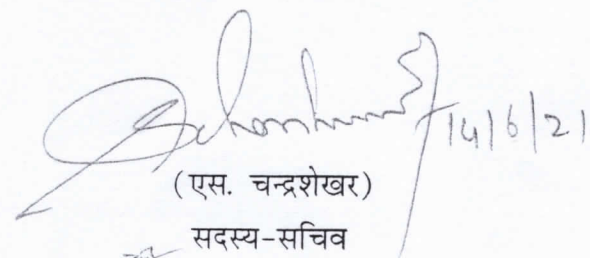 14/6/21
(एस. चन्द्रशेखर)
सदस्य-सचिव